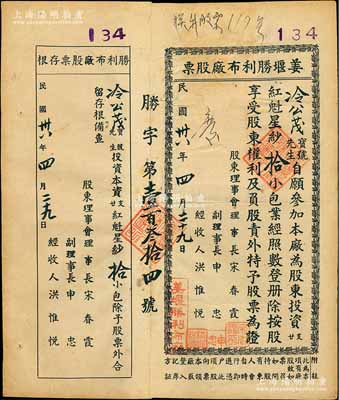 上海阳明拍卖
134
134
姜堰勝利布廠股票
冷公茂寶號先生自願參加本廠為股東投資廿支
紅魁星紗拾小包業經照數登册除按股
享受股東權利及負股責外特予股票為證
股東理事會理事長宋春霞
副理事長申忠
經收人洪惟悅
民國卅八年四月二十九日
勝字第壹百叁拾四號
勝利布廠股票存根
冷公茂寶號先生投資本資廿支紅魁星紗拾小包除予股票外合
留存根備查
股東理事會理事長宋春霞
副理事長申忠
經收人洪惟悅
民國卅八年四月二十九日